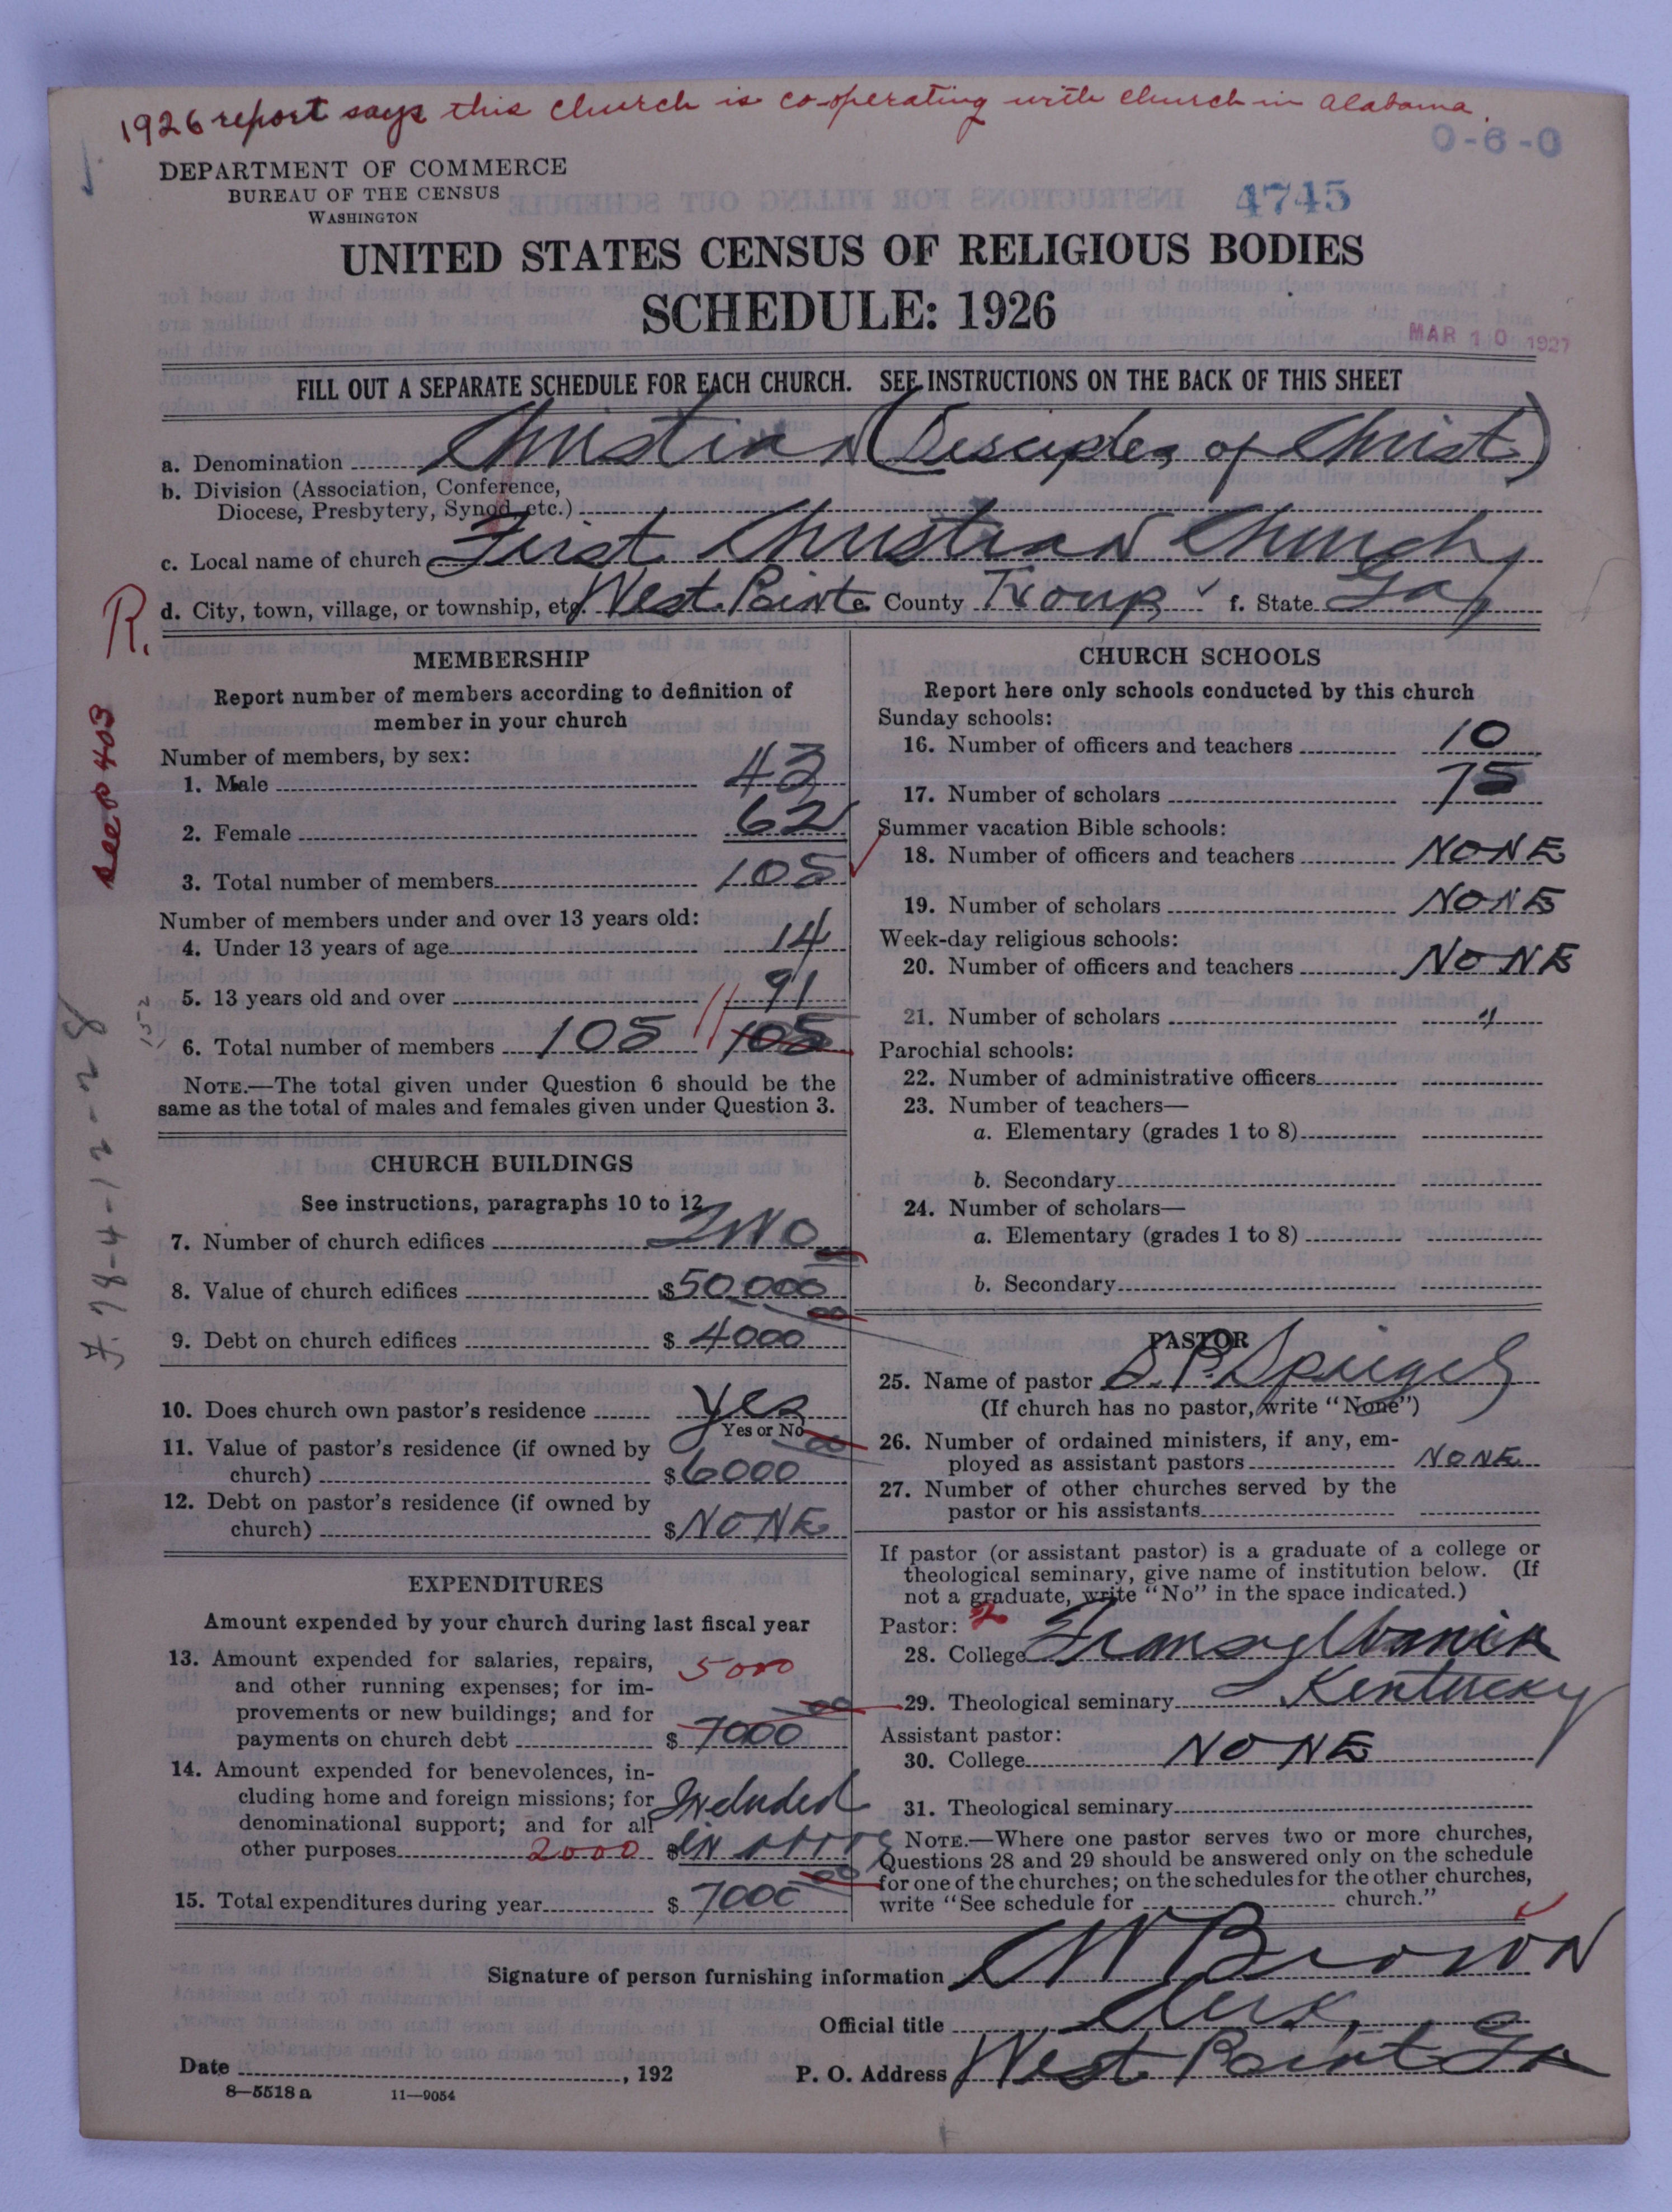 1926 report says this church is co-operating with church in Alabama.
0-6-0
DEPARTMENT OF COMMERCE
BUREAU OF THE CENSUS
WASHINGTON
4745
UNITED STATES CENSUS OF RELIGIOUS BODIES
SCHEDULE: 1926
MAR 10 1927
FILL OUT A SEPARATE SCHEDULE FOR EACH CHURCH. SEE INSTRUCTIONS ON THE BACK OF THIS SHEET
a. Denomination Christian (Disciples of Christ)
b. Division (Association, Conference,
Diocese, Presbytery, Synod, etc.)
c. Local name of church First Christian Church
d. City, town, village, or township, etc. West Point e. County Troup f. State Ga
R.
see p 403
7-78-4-12-28
MEMBERSHIP
Report number of members according to definition of
member in your church
Number of members, by sex:
1. Male 43
2. Female 62
3. Total number of members 105
Number of members under and over 13 years old:
4. Under 13 years of age 14
5. 13 years old and over 91
6. Total number of members 105 105
NOTE.—The total given under Question 6 should be the
same as the total of males and females given under Question 3.
CHURCH BUILDINGS
See instructions, paragraphs 10 to 12
7. Number of church edifices Two
8. Value of church edifices $50,000 00
9. Debt on church edifices $ 4000 00
10. Does church own pastor's residence Yes
Yes or No
11. Value of pastor's residence (if owned by
church) $6000 00
12. Debt on pastor's residence (if owned by
church) $ NONE
EXPENDITURES
Amount expended by your church during last fiscal year
13. Amount expended for salaries, repairs, 5000
and other running expenses; for im-
provements or new buildings; and for
payments on church debt $ 7000 00
14. Amount expended for benevolences, in-
cluding home and foreign missions; for Included
denominational support; and for all
other purposes 2000 $ in above
15. Total expenditures during year $ 7000 00
CHURCH SCHOOLS
Report here only schools conducted by this church
Sunday schools:
16. Number of officers and teachers 10
17. Number of scholars 75
Summer vacation Bible schools:
18. Number of officers and teachers NONE
19. Number of scholars NONE
Week-day religious schools:
20. Number of officers and teachers NONE
21. Number of scholars "
Parochial schools:
22. Number of administrative officers
23. Number of teachers—
a. Elementary (grades 1 to 8)
b. Secondary
24. Number of scholars—
a. Elementary (grades 1 to 8)
b. Secondary
PASTOR
25. Name of pastor S. P. Spiegel
(If church has no pastor, write "None")
26. Number of ordained ministers, if any, em-
ployed as assistant pastors NONE
27. Number of other churches served by the
pastor or his assistants
If pastor (or assistant pastor) is a graduate of a college or
theological seminary, give name of institution below. (If
not a graduate, write "No" in the space indicated.)
Pastor: 2
28. College Transylvania
29. Theological seminary Kentucky
Assistant pastor:
30. College NONE
31. Theological seminary
NOTE.—Where one pastor serves two or more churches,
Questions 28 and 29 should be answered only on the schedule
for one of the churches; on the schedules for the other churches,
write "See schedule for church."
Signature of person furnishing information CW Brown
Official title Clerk
Date , 192 P. O. Address West Point Ga
8—5518 a 11—9054